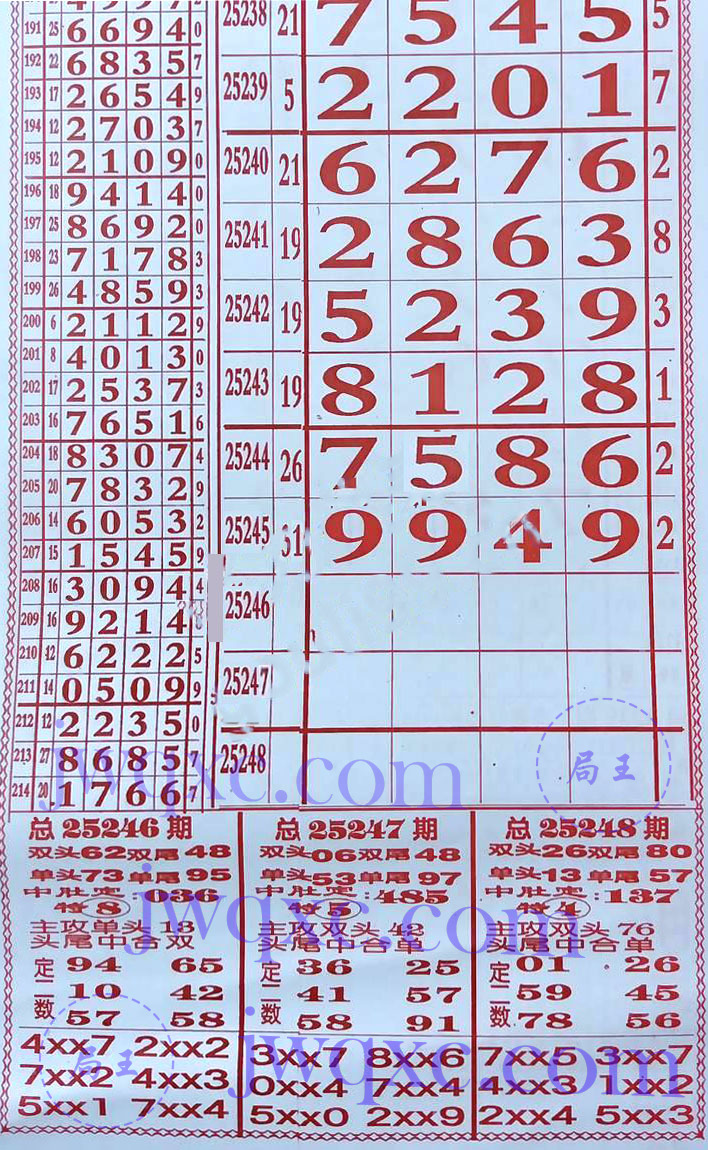 191 25 6 6 9 4 0
192 22 6 8 3 5 7
193 17 2 6 5 4 9
194 12 2 7 0 3 7
195 12 2 1 0 9 0
196 18 9 4 1 4 0
197 25 8 6 9 2 0
198 23 7 1 7 8 3
199 26 4 8 5 9 3
200 6 2 1 1 2 9
201 8 4 0 1 3 0
202 17 2 5 3 7 3
203 16 7 6 5 1 6
204 18 8 3 0 7 4
205 20 7 8 3 2 9
206 14 6 0 5 3 2
207 15 1 5 4 5 9
208 16 3 0 9 4 4
209 16 9 2 1 4
210 12 6 2 2 2 5
211 14 0 5 0 9 9
212 12 2 2 3 5 0
213 27 8 6 8 5 7
214 20 1 7 6 6 7
25238 21 7 5 4 5 5
25239 5 2 2 0 1 7
25240 21 6 2 7 6 2
25241 19 2 8 6 3 8
25242 19 5 2 3 9 3
25243 19 8 1 2 8 1
25244 26 7 5 8 6 2
25245 31 9 9 4 9 2
25246
25247
25248
jwqxc.com
局王
总25246期
双头62双尾48
单头73单尾95
中肚宽:036
特8
主攻单头13
头尾中合双
定二数
94 65
10 42
57 58
4xx7 2xx2
7xx2 4xx3
5xx1 7xx4
总25247期
双头06双尾48
单头53单尾97
中肚宽:485
特5
主攻双头42
头尾中合单
定二数
36 25
41 57
58 91
3xx7 8xx6
0xx4 7xx4
5xx0 2xx9
总25248期
双头26双尾80
单头13单尾57
中肚宽:137
特4
主攻双头76
头尾中合单
定二数
01 26
59 45
78 56
7xx5 3xx7
4xx3 1xx2
2xx4 5xx3
jwqxc.com
局王
jwqxc.com